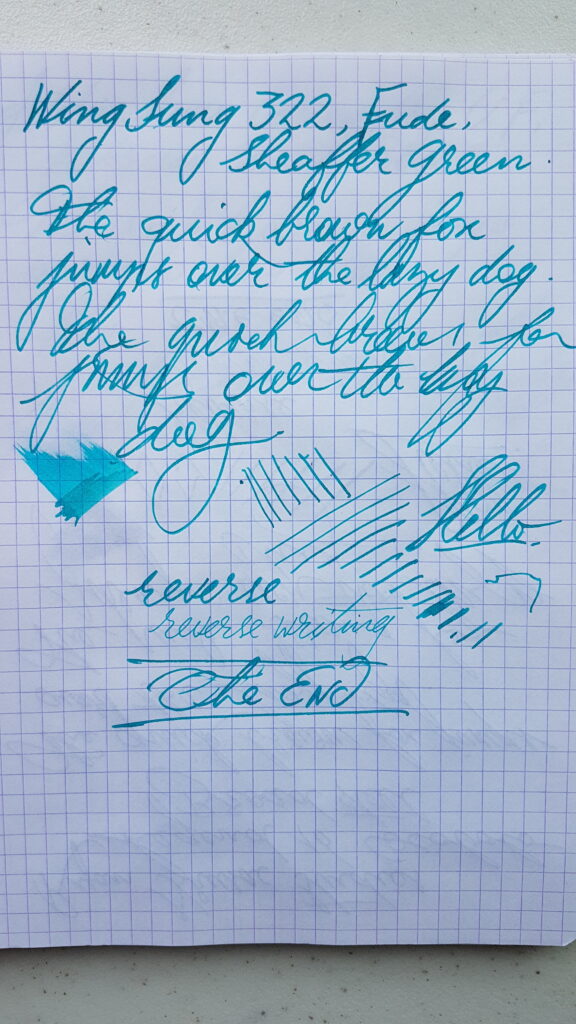 Wing Sung 322, Fude,
Sheaffer Green.
The quick brown fox
jumps over the lazy dog.
The quick brown fox
jumps over the lazy
dog.
Hello.
reverse
reverse writing
The END